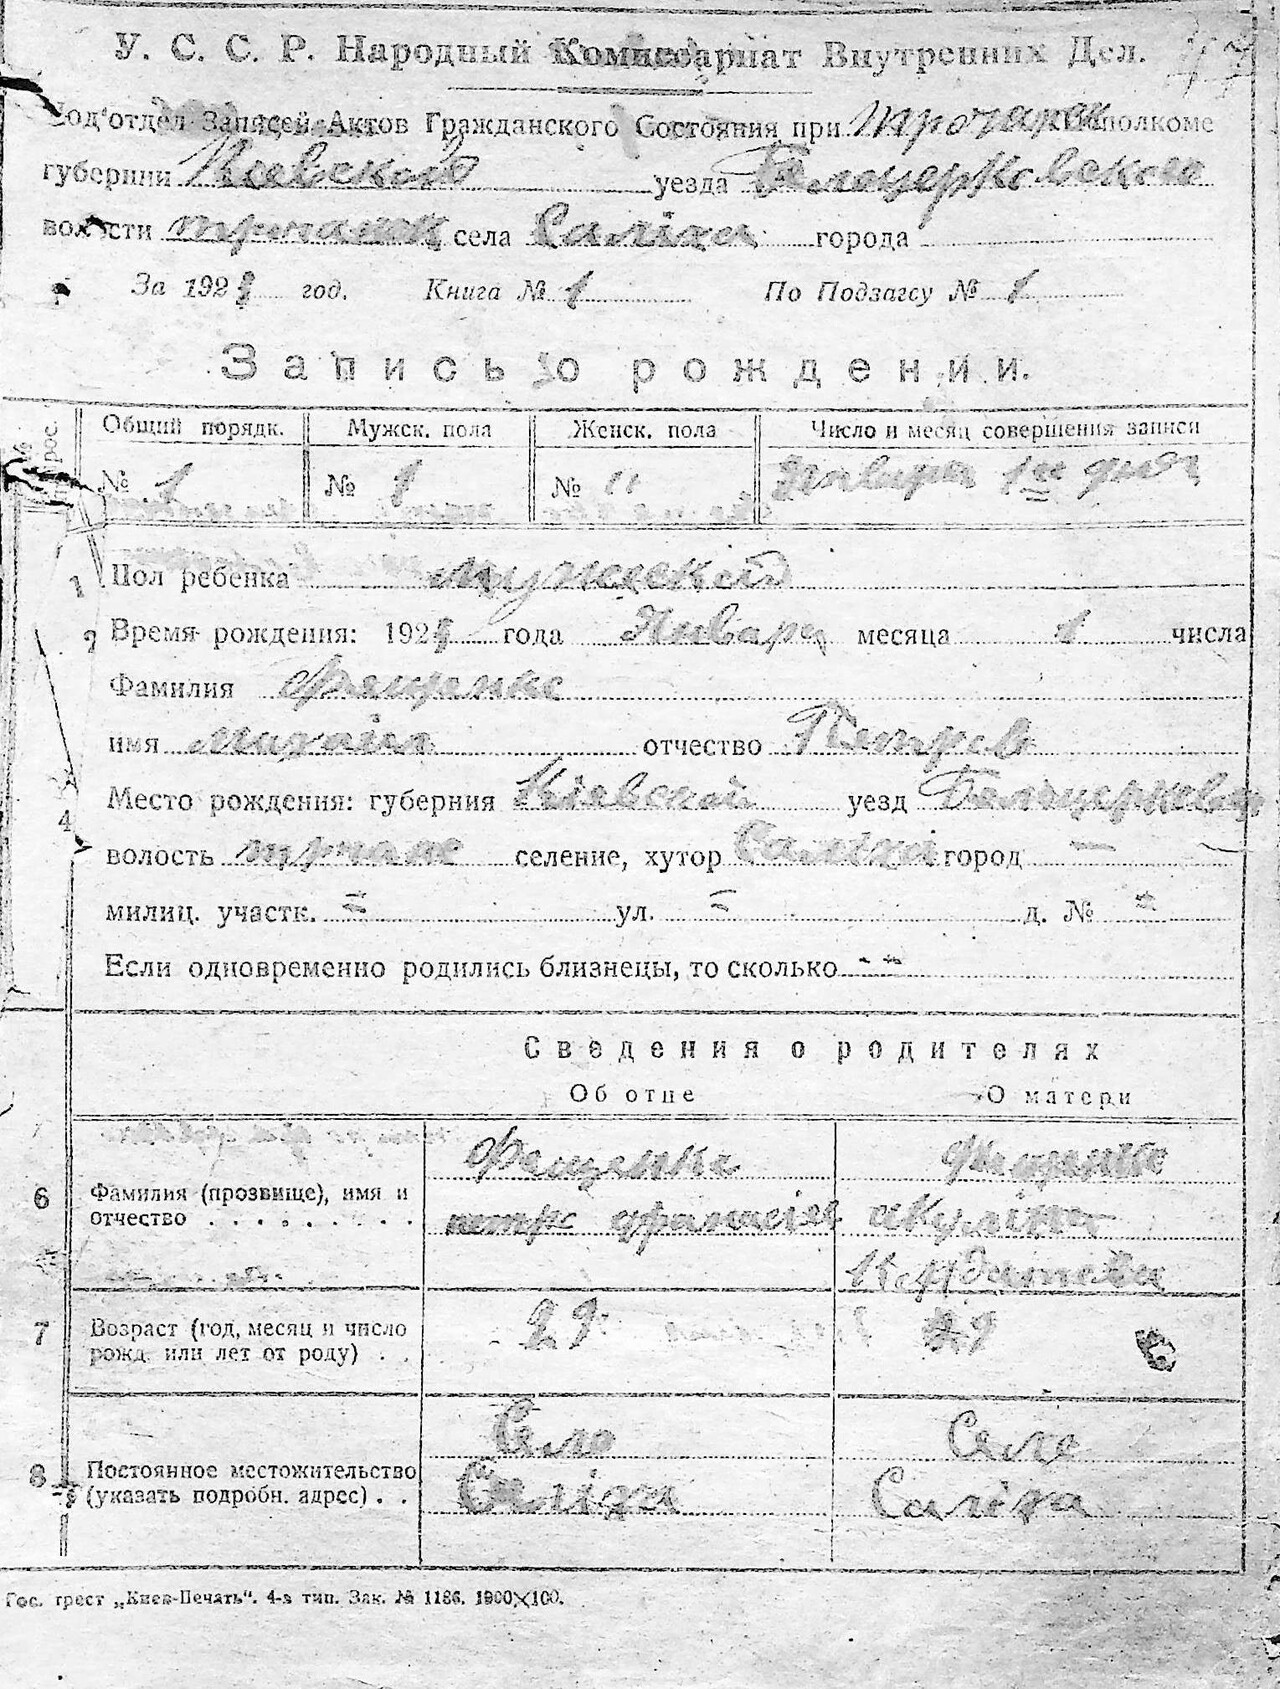 У. С. С. Р. Народный Комиссариат Внутренних Дел.
Под'отдел Записей Актов Гражданского Состояния при Исполкоме
губернии Киевской уезда Белоцерковского
волости села Саліха города
За 192 год. Книга № 1 По Подзагсу № 1
Запись о рождении.
Общий порядк. Мужск. пола Женск. пола Число и месяц совершения записи
№ 1 № 1 № " Января 1го дня
1 Пол ребенка мужеской
2 Время рождения: 192 года Января месяца 1 числа
Фамилия Фещенко
имя михаіл отчество Петров
4 Место рождения: губерния Кіевской уезд
волость селение, хутор Саліха город —
милиц. участк. = ул. = д. № =
Если одновременно родились близнецы, то сколько - =
Сведения о родителях
Об отце О матери
Фещенко Фещенко
6 Фамилия (прозвище), имя и
отчество . . . . . . . . . петро афанасіев акуліна
7 Возраст (год, месяц и число 29 29
рожд. или лет от роду) . .
Село Село
8 Постоянное местожительство
(указать подробн. адрес) . . Саліха Саліха
Гос. трест „Киев-Печать". 4-я тип. Зак. № 1186. 1900×100.